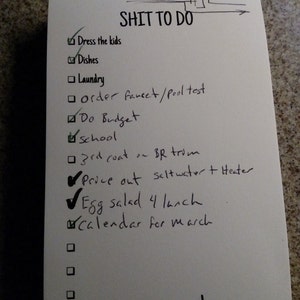 SHIT TO DO
Dress the kids
Dishes
Laundry
order fauset/pool test
Do Budget
school
3rd coat on BR trim
Price out saltwater + Heater
Egg salad 4 lunch
Calendar for march